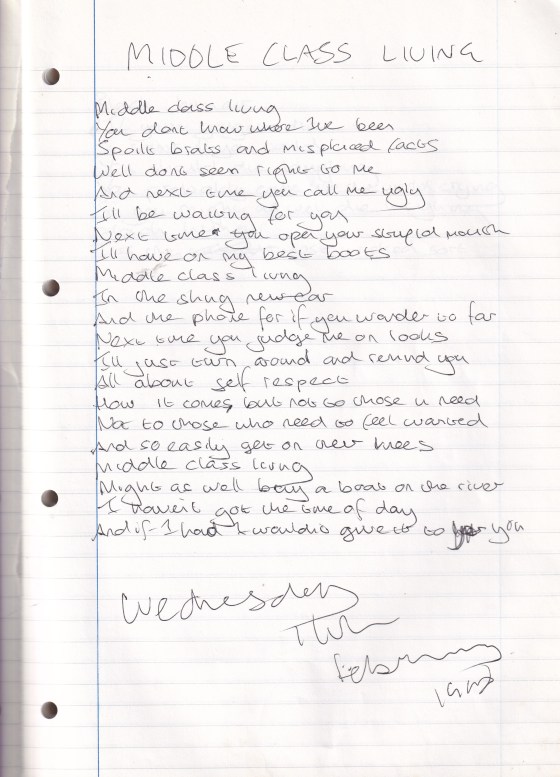 MIDDLE CLASS LIVING
Middle class living
You dont know where I've been
Spoilt brats and misplaced facts
Well dont seem right to me
And next time you call me ugly
I'll be waiting for you
Next time you open your stupid mouth
I'll have on my best boots
Middle class living
In the shiny new car
And the phone for if you wander to far
Next time you judge me on looks
I'll just turn around and remind you
All about self respect
How it comes, but not to those u need
Not to those who need to feel wanted
And so easily get on their knees
Middle class living
Might as well buy a boat on the river
I haven't got the time of day
And if I had I wouldn't give it to you
Wednesday
February